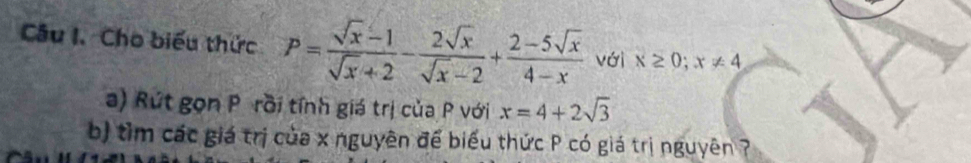 Câu I. Cho biểu thức P = \frac{\sqrt{x}-1}{\sqrt{x}+2} - \frac{2\sqrt{x}}{\sqrt{x}-2} + \frac{2-5\sqrt{x}}{4-x} với x ≥ 0; x ≠ 4
a) Rút gọn P rồi tính giá trị của P với x = 4 + 2\sqrt{3}
b) tìm các giá trị của x nguyên để biểu thức P có giá trị nguyên ?